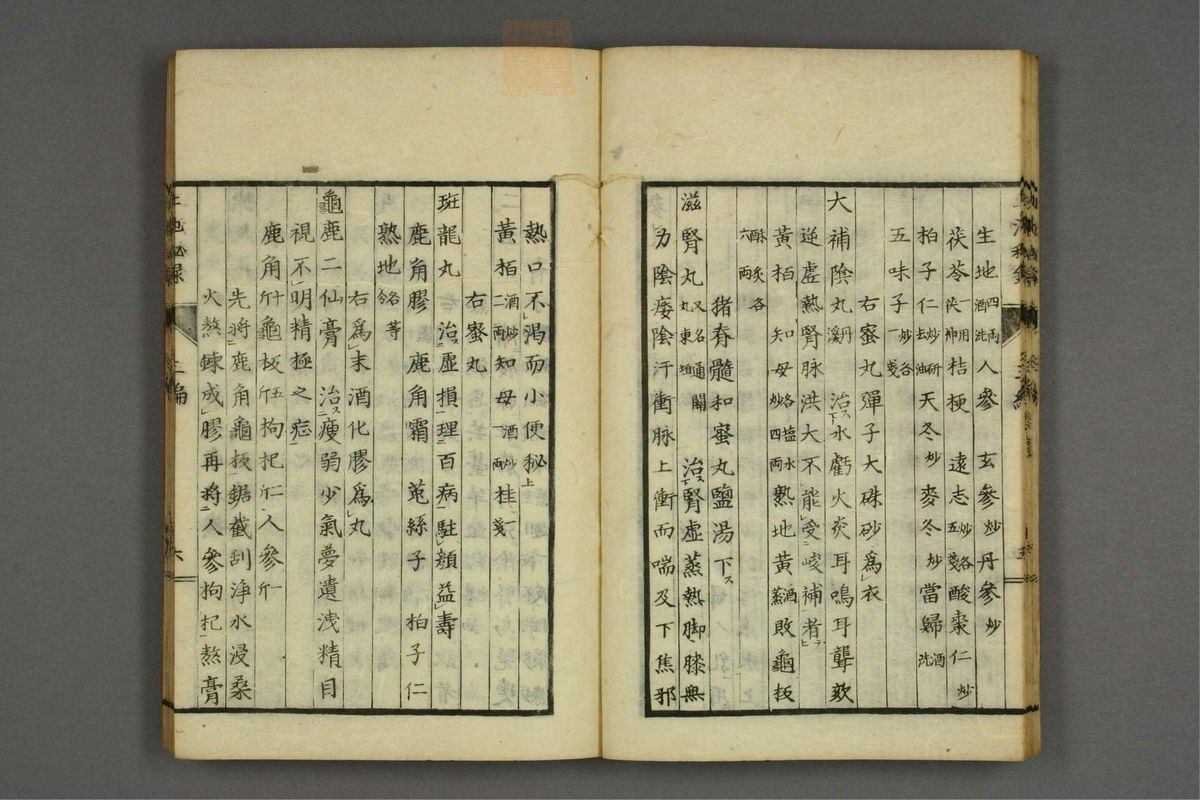 生地四両酒洗人參玄參炒丹參炒
茯苓一用茯神桔梗遠志炒各五戔酸棗仁炒
柏子仁炒研去油天冬炒麥冬炒當歸酒洗
五味子炒各一戔
右蜜丸彈子大硃砂爲衣
大補陰丸丹溪治水虧火炎耳鳴耳聾欬
逆虛熱腎脉洪大不能受峻補者
黃栢知母各塩水炒四両熟地黃酒蒸敗龜板
酥炙各六両
猪脊髓和蜜丸鹽湯下
滋腎丸又名通關丸東垣治腎虛蒸熱脚膝無
力陰痿陰汗衝脉上衝而喘及下焦邪
熱口不渴而小便秘上
黃栢酒炒二両知母酒炒一両桂一戔
右蜜丸
斑龍丸治虛損理百病駐顔益壽
鹿角膠鹿角霜菟絲子柏子仁
熟地各等
右爲末酒化膠爲丸
龜鹿二仙膏治瘦弱少氣夢遺洩精目
視不明精極之症
鹿角龜板枸杞人參
先將鹿角龜板鋸截刮淨水浸桑
火熬鍊成膠再將人參枸杞熬膏